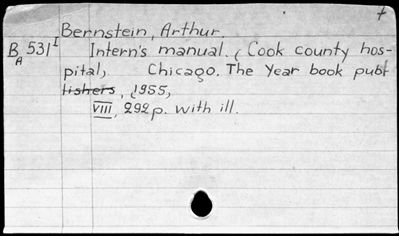 +
Bernstein, Arthur.
B 531 I Intern's manual. (Cook county hos-
A pital). Chicago. The Year book publ
lishers, (1955)
VIII, 292 p. with ill.